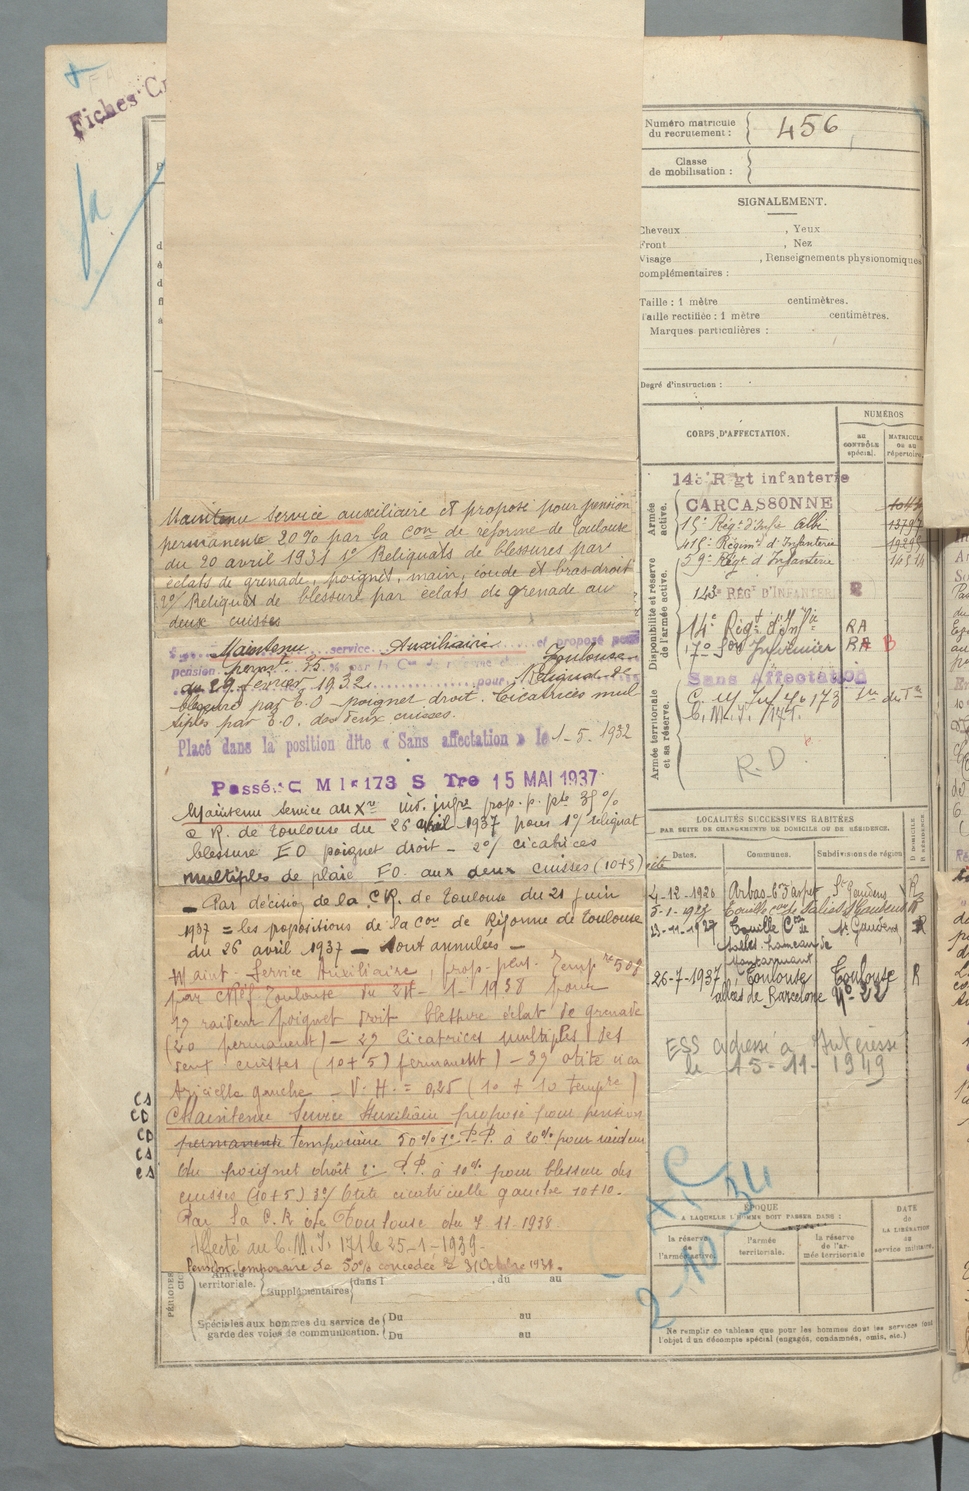 Fiches
fa
Maintenu service auxiliaire et proposé pour pension
permanente 20% par la Con de réforme de Toulouse
du 20 avril 1931 1o Reliquats de blessures par
éclats de grenade, poignet, main, coude et bras droit
2o/ Reliquat de blessure par éclats de grenade aux
deux cuisses
Maintenu service Auxiliaire et proposé pour
pension permte 35 % par la Con de réforme de Toulouse
du 29 février 1932 pour Reliquat de
blessure par E.O. poignet droit. Cicatrices mul
tiples par E.O. des deux cuisses.
Placé dans la position dite « Sans affectation » le 1-5-1932
Passé C M I 173 S Tre 15 MAI 1937
Maintenu Service auxre inf. prop. p. pte 35%
C R. de Toulouse du 26 avril 1937 pour 1o/ reliquat
blessure EO poignet droit - 2o/ cicatrices
multiples de plaie EO aux deux cuisses (10+5)
- Par décision de la C.R. de Toulouse du 21 juin
1937 = les propositions de la Con de Réforme de Toulouse
du 26 avril 1937 - sont annulées -
Maint. Service Auxiliaire, prop. pens. Tempre 50%
par CRéf Toulouse du 1-1938 pour
1o/ raideur poignet droit blessure éclat de grenade
(20 permanent) - 2o/ cicatrices multiples des
deux cuisses (10+5) permanent) - 3o/ otite cica
tricielle gauche - V.H. = 0,25 (10 + 10 tempre)
Maintenu Service Auxiliaire proposé pour pension
permanente temporaire 50% 1o P.P. à 20% pour raideur
du poignet droit 2o P.P. à 10% pour blessure des
cuisses (10+5) 3o/ Otite cicatricielle gauche 10+10.
Par la C.R de Toulouse du 7 11-1938
Affecté au C.M.I. 171 le 25-1-1939-
Pension temporaire de 50% concédée le 31 Octobre 1938.
territoriale.
supplémentaires
dans l
, du
au
PÉRIODES
Spéciales aux hommes du service de
garde des voies de communication.
Du
au
Du
au
Numéro matricule
du recrutement :
456
Classe
de mobilisation :
SIGNALEMENT.
Cheveux , Yeux
Front , Nez
Visage , Renseignements physionomiques
complémentaires :
Taille : 1 mètre centimètres.
Taille rectifiée : 1 mètre centimètres.
Marques particulières :
Degré d'instruction :
CORPS D'AFFECTATION.
NUMÉROS
au
CONTRÔLE
spécial.
MATRICULE
ou au
répertoire
Armée
active.
143 Rgt infanterie
CARCASSONNE
15e Régt d'Infie Albi
415e Régimt d'Infanterie
59e Régt d'Infanterie
Disponibilité et réserve
de l'armée active.
143e RÉGt D'INFANTERIE R
14e Régt d'Infie RA
17e Son Infirmier RA B
Sans Affectation
Armée territoriale
et sa réserve.
C. M. I. 171.
R.D
LOCALITÉS SUCCESSIVES HABITÉES
PAR SUITE DE CHANGEMENTS DE DOMICILE OU DE RÉSIDENCE.
Dates. Communes. Subdivisions de région
D DOMICILE
R RÉSIDENCE
4-12-1920 Arbas St Gaudens R
St Gaudens R
23-11-1927 Touille Con de St Gaudens R
Salies hameau de
26-7-1937 Toulouse Toulouse R
allées de Barcelone No 22
ESS adressé à
le 15-11-1949
2-10-34
ÉPOQUE
A LAQUELLE L'HOMME DOIT PASSER DANS :
DATE
de
LA LIBÉRATION
du
service militaire.
la réserve
de
l'armée active.
l'armée
territoriale.
la réserve
de l'ar-
mée territoriale
Ne remplir ce tableau que pour les hommes dont les services font
l'objet d'un décompte spécial (engagés, condamnés, omis, etc.)